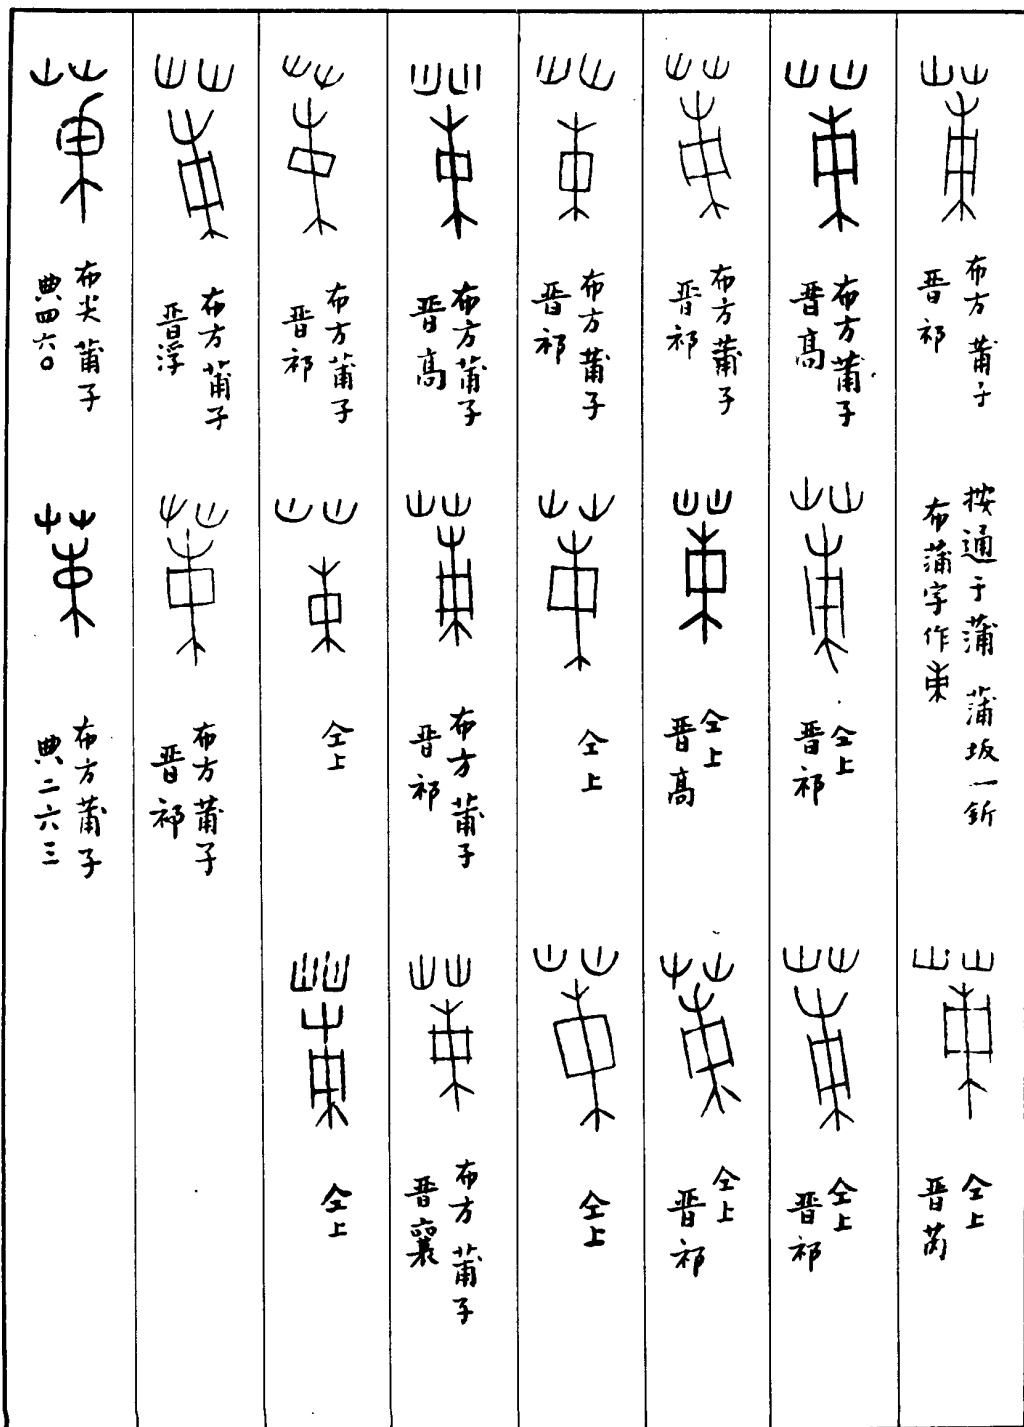 布方 莆子
晋祁
按通于蒲 蒲坂一釿
布蒲字作
仝上
晋芮
布方莆子
晋高
仝上
晋祁
仝上
晋祁
布方莆子
晋祁
仝上
晋高
仝上
晋祁
布方莆子
晋祁
仝上
仝上
布方莆子
晋高
布方莆子
晋祁
布方莆子
晋襄
布方莆子
晋祁
仝上
仝上
布方莆子
晋浮
布方莆子
晋祁
布尖莆子
典四六〇
布方莆子
典二六三